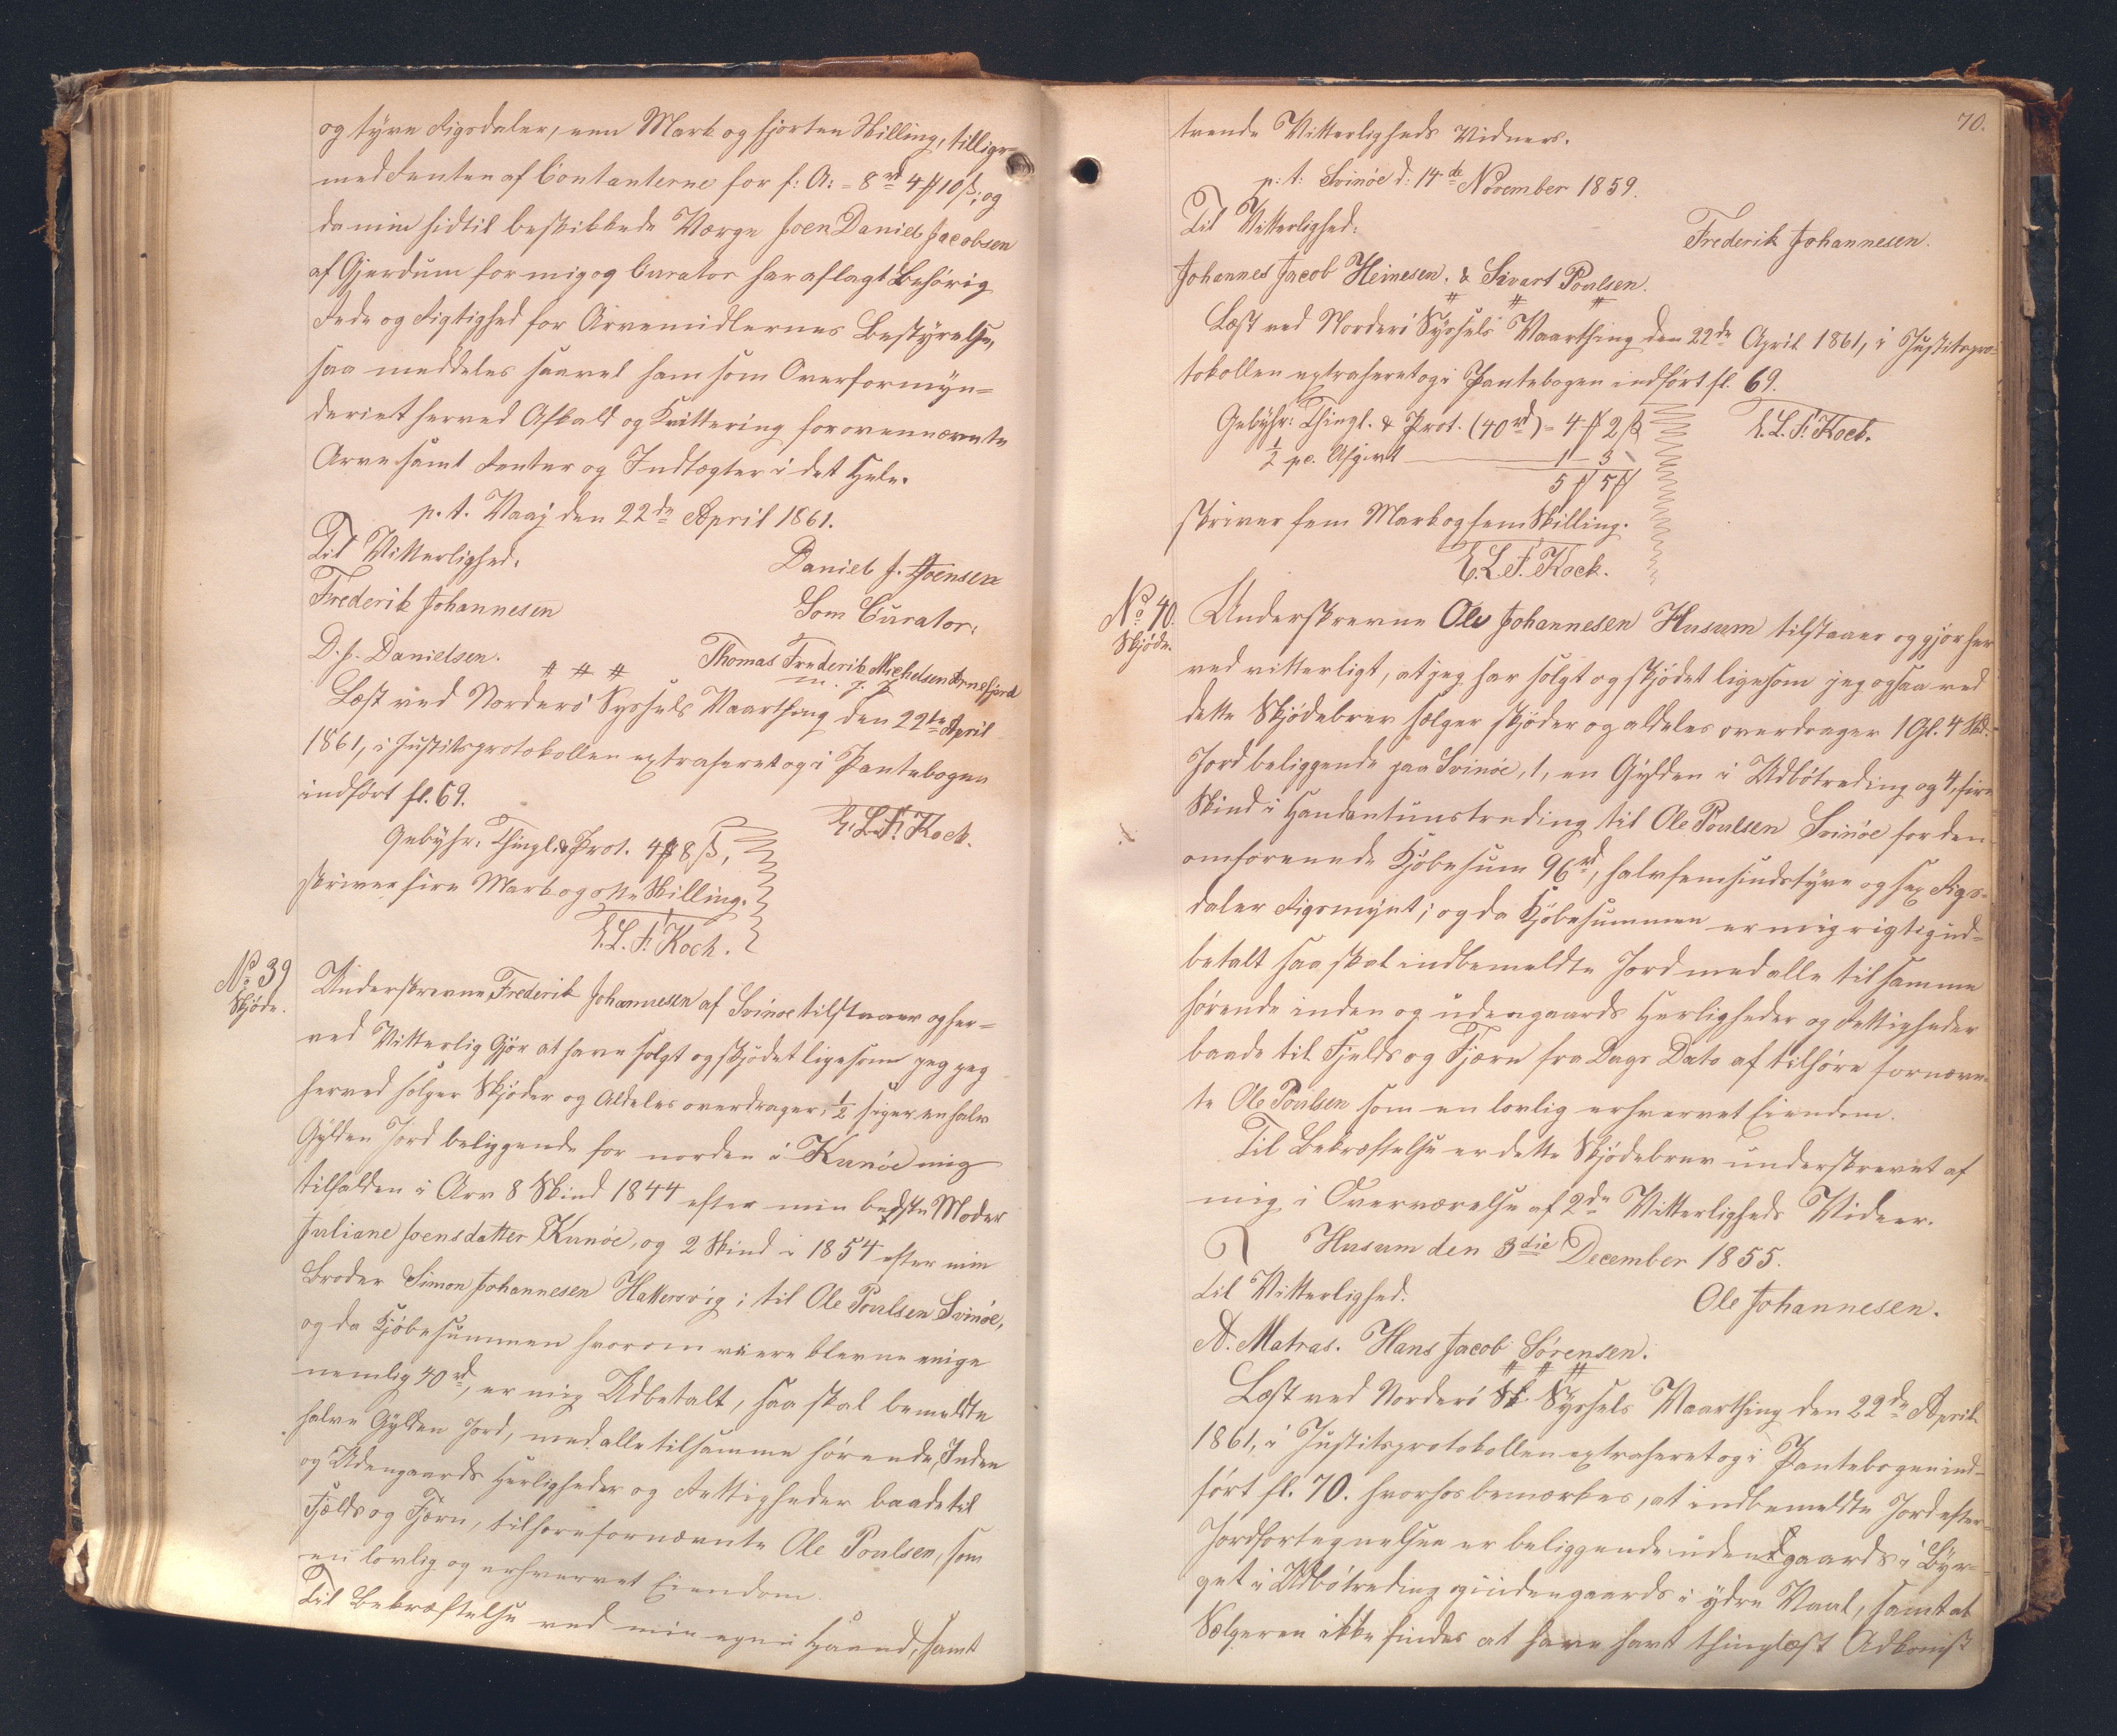 og tyve Rigsdaler, een Mark og fjorten Skilling, tillige-
med Renten af Contanterne for f: A: = 8 rd 4 ₻ 10 ß; og
da min hidtil beskikkede Værge Joen Daniel Jacobsen
af Gjerdum for mig og Curator har aflagt behörig
Rede og Rigtighed for Arvemidlernes Bestyrelse,
saa meddeles saavel ham som Overformyn=
deriet herved Afkald og Kvittering for ovennævnte
Arv samt Renter og Indtægter i det Hele.
p. t. Vaag den 22de April 1861.
Til Vitterlighed:
Daniel J. Joensen
Frederik Johannesen
Som Curator:
D. J. Danielsen.
Thomas Frederik Michelsen Arnefjord
m. f. P.
Læst ved Norderö Syssels Vaarthing den 22de April
1861, i Justitsprotokollen extraheret og i Pantebogen
indfört fl. 69.
E. L. F. Koch.
Gebyhr: Thingl. & Prot. 4 ₻ 8 ß,
skriver fire Mark og otte Skilling.
E. L. F. Koch.
No 39
Skjöde.
Underskrevne Frederik Johannesen af Svinöe tilstaaer og her=
ved Vitterlig Gjör at have solgt og skjödet ligesom jeg jeg
herved sælger Skjöder og Aldeles overdrager, ½ siger en halv
Gylden Jord beliggende for norden i Kunöe mig
tilfalden i Arv 8 Skind 1844 efter min bedste Moder
Juliane Joensdatter Kunöe, og 2 Skind i 1854 efter min
Broder Simon Johannesen Hattervig; til Ole Poulsen Svinöe,
og da Kjöbesummen hvorom vi ere blevne enige
nemlig 40 rd, er mig Udbetalt, saa skal bemeldte
halve Gylden Jord, med alle tilsamme hörende, Inden
og Udengaards Herligheder og Rettigheder baade til
Fjælds og Fjærn, tilhøre fornævnte Ole Poulsen, som
en lovlig og erhvervet Eiendom.
Til Bekræftelse ved min egen Haand, samt
70.
tvende Vitterligheds Vidner.
p: t: Svinöe d: 14de November 1859.
Til Vitterlighed:
Frederik Johannesen.
Johannes Jacob Heinesen. & Sivart Poulsen.
Læst ved Norderö Syssels Vaarthing den 22de April 1861, i Justitspro-
tokollen extraheret og i Pantebogen indfört fl. 69.
Gebyhr: Thingl. & Prot. (40 rd) = 4 ₻ 2 ß
E. L. F. Koch.
½ pc. Afgivt 1 - 3
5 ₻ 5 ß
skriver fem Mark og fem Skilling.
E. L. F. Koch.
No 40.
Skjöde.
Underskrevne Ole Johannesen Husum tilstaaer og gjör her
ved vitterligt, at jeg har solgt og skjödet ligesom jeg ogsaa ved
dette Skjödebrev sælger skjöder og aldeles overdrager 1 Gl. 4 Skd.
Jord beliggende paa Svinöe, 1, en Gylden i Udbötreding og 4, fire
Skind i Handantunstreding til Ole Poulsen Svinöe for den
omforenede Kjöbesum 96 rd, halvfemsindstyve og sex Rigs-
daler Rigsmynt; og da Kjöbesummen er mig rigtig ud-
betalt saa skal indbemeldte Jord med alle til samme
hörende inden og udengaards Herligheder og Rettigheder
baade til Fjelds og Fjærn fra Dags Dato af tilhöre fornævn-
te Ole Poulsen som en lovlig erhvervet Eiendom.
Til Bekræftelse er dette Skjödebrev underskrevet af
mig i Overværelse af 2de Vitterligheds Vidner.
Husum den 3die December 1855.
Til Vitterlighed.
Ole Johannesen.
A. Matras. Hans Jacob Sørensen.
Læst ved Norderö Sk Syssels Vaarthing den 22de April
1861, i Justitsprotokollen extraheret og i Pantebogen ind-
fört fl. 70. hvorhos bemærkes, at indbemeldte Jord efter
Jordfortegnelsen er beliggende udengaards i Byr-
get i Udbötreding og indengaards i ydre Vaal, samt at
Sælgeren ikke findes at have havt thinglæst Adkomst